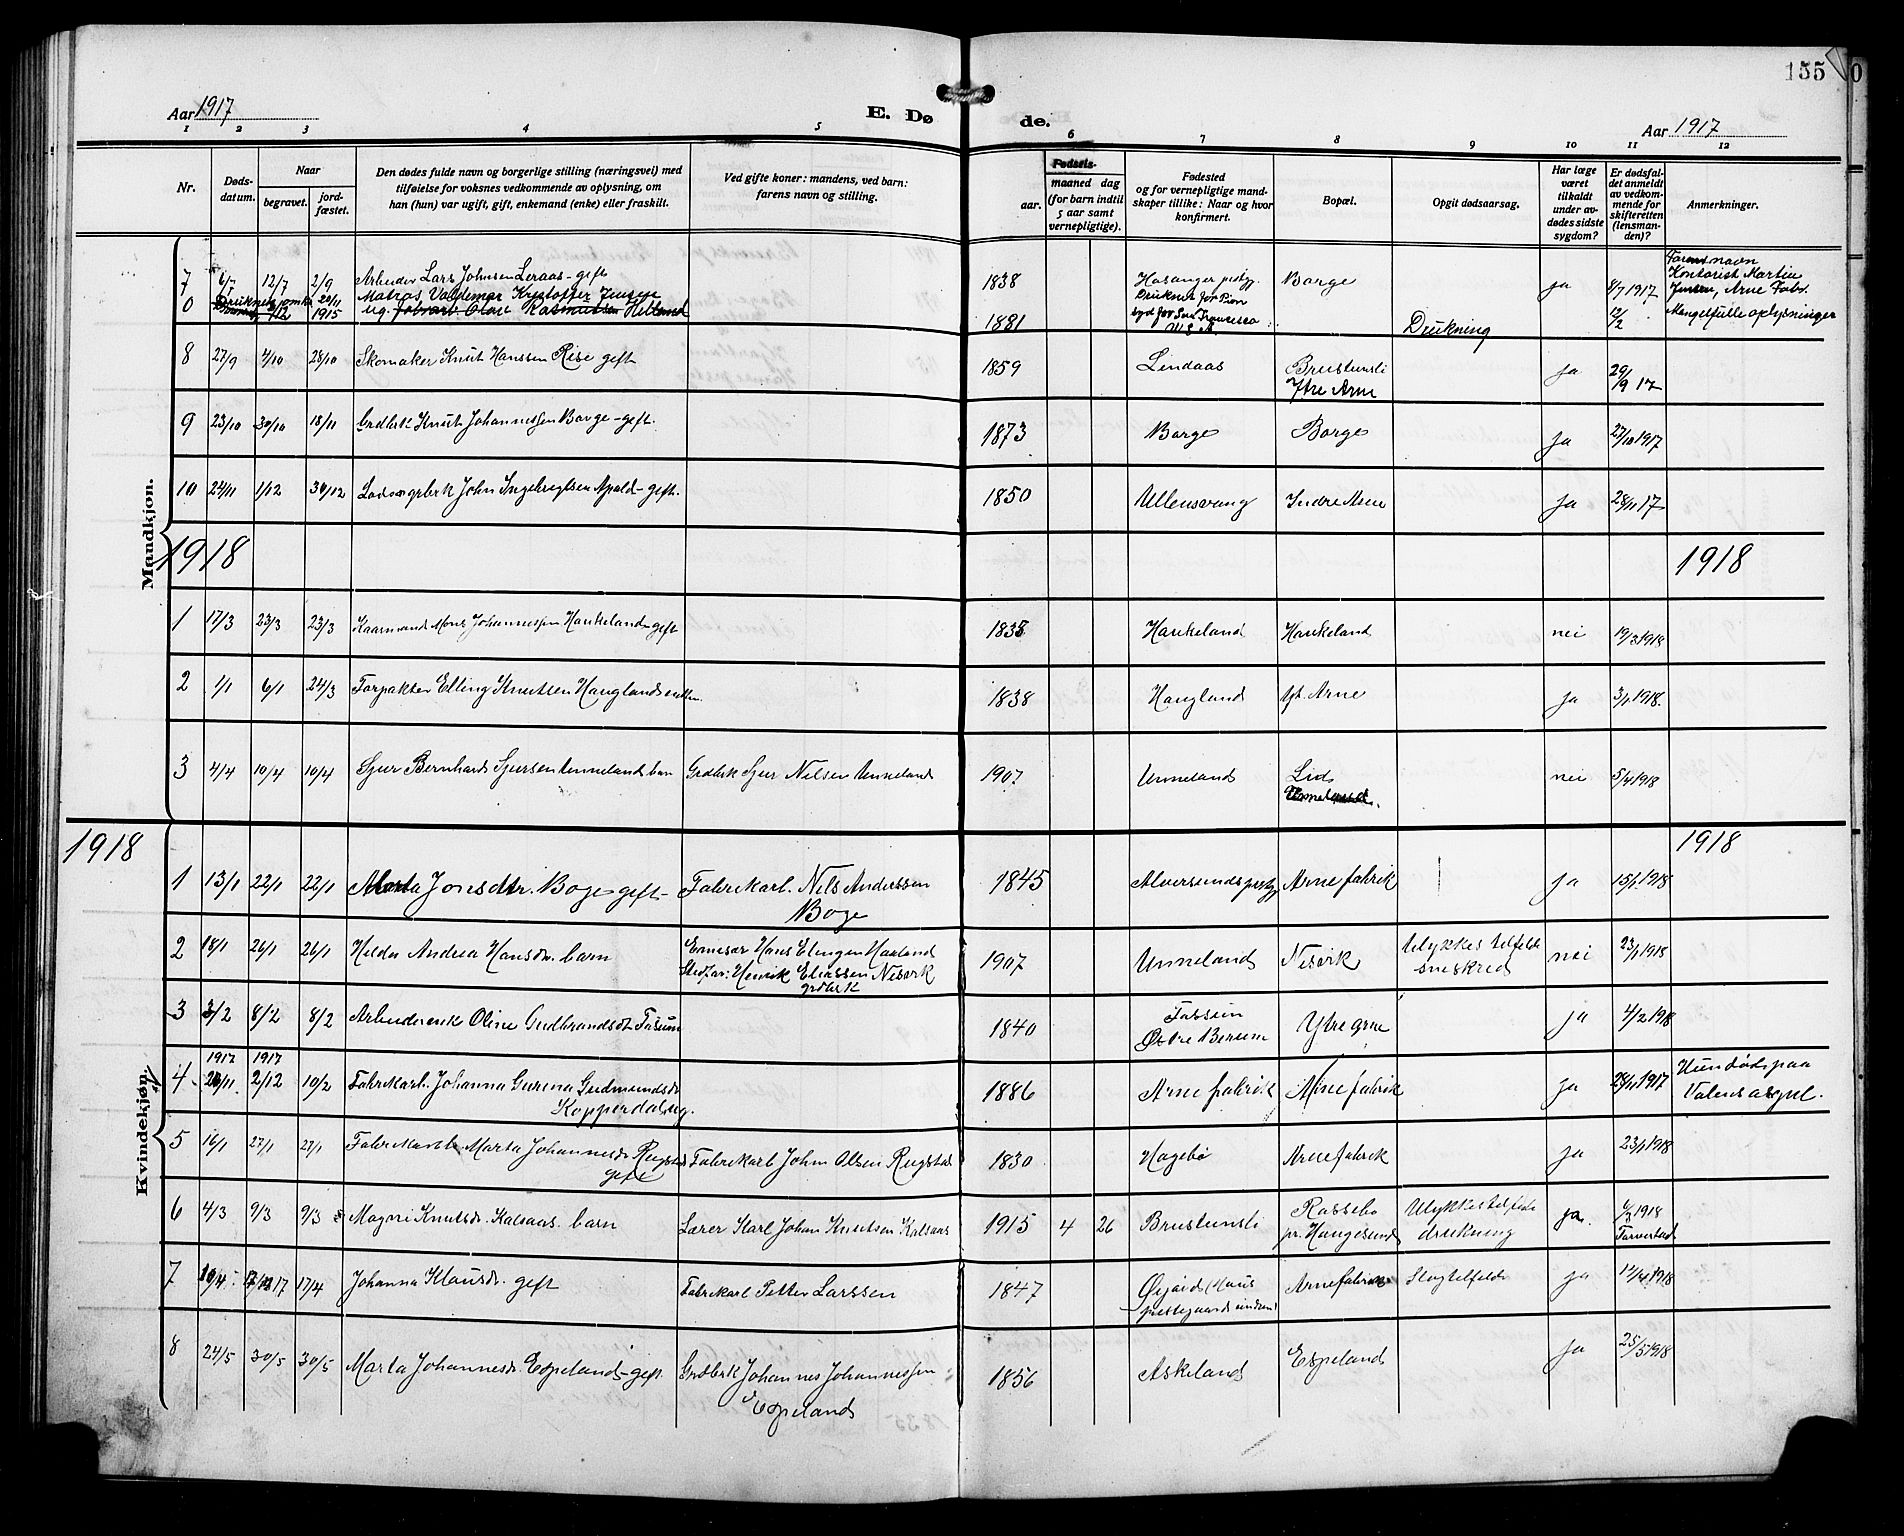 155
0
Aar 1917
E. Dø
de.
Aar 1917
1 2 3 4 5 6 7 8 9 10 11 12
Nr.
Døds-
datum.
Naar
begravet.
jord-
fæstet.
Den dødes fulde navn og borgerlige stilling (næringsvei) med
tilføielse for voksnes vedkommende av oplysning, om
han (hun) var ugift, gift, enkemand (enke) eller fraskilt.
Ved gifte koner: mandens, ved barn:
farens navn og stilling.
Fødsels-
aar.
maaned dag
(for barn indtil
5 aar samt
vernepligtige).
Fødested
og for vernepligtige mand-
skaper tillike: Naar og hvor
konfirmert.
Bopæl.
Opgit dødsaarsag.
Har læge
været
tilkaldt
under av-
dødes sidste
sygdom?
Er dødsfal-
det anmeldt
av vedkom-
mende for
skifteretten
(lensman-
den)?
Anmerkninger.
Mandkjøn.
7 6/7 12/7 2/9 Arbeider Lars Johnsen Leraas - gift 1838 Hosanger prstgj. Borge ja 8/7 1917
0 1915 Matros Valdemar Kristoffer Jensen ug. 1881 San Francisco U.S.A. Drukning 12/2
Farens navn
Kontorist Martin
Jensen, Arne Fabr.
Mangelfulle oplysninger
8 27/9 4/10 28/10 Skomaker Knut Hanssen Rise gift 1859 Lindaas Brustunsli ja 29/9 17
Ytre Arne
9 23/10 30/10 18/11 Grdbrk Knut Johannessen Borge - gift. 1873 Borge Borge ja 27/10 1917
10 24/11 1/12 30/12 John Ingebrigtsen Apald - gift. 1850 Ullensvang Indre Arne ja 28/11 17
1918 1918
1 17/3 23/3 23/3 Kaarmand Mons Johannessen Haukeland - gift 1838 Haukeland Haukeland nei 19/3 1918
2 1/1 6/1 24/3 Forpakter Elling Knutsen Haugland enkem. 1838 Haugland Yt. Arne ja 3/1 1918.
3 4/4 10/4 10/4 Sjur Bernhard Sjursen Unneland barn Grdbrk Sjur Nilsen Unneland 1907 Unneland Lid nei 5/4 1918
Unneland.
1918 1918
Kvindekjøn.
1 13/1 22/1 22/1 Marta Jonsdtr. Boge gift - Fabrikarb. Nils Anderssen 1845 Alversunds prstgj Arne fabrik ja 15/1 1918
Boge
2 18/1 26/1 26/1 Hilda Andrea Hansdr. barn Hans Elingen Haaland 1907 Unneland Nesvik Ulykkestilfelde nei 23/1 1918
Stedfar: Henrik Eliassen Nesvik sneskred
grdbrk
3 3/2 8/2 8/2 Arbeiderenk Oline Gudbrandsdt Fossum 1840 Fossum Ytre Arne ja 4/2 1918
Østre Berum
1917 1917
4 26/11 2/12 10/2 Fabrikarb. Johanna Gurina Gudmundsdr 1886 Arne fabrik Arne fabrik ja 28/11 1917 Hun døde paa
Kopperdal ug. Valens asyl.
5 16/1 27/1 27/1 Fabrikarb Marta Johannesdr Rugstad Fabrikarb John Olsen Rugstad 1830 Hagebø Arne fabrik ja 23/1 1918
gift
6 4/3 9/3 9/3 Magni Knutsdr. Kalsaas. barn Lærer Karl Johan Knutsen Kalsaas 1915 4 26 Brustunsli Rossebø Ulykkestilfelde ja. 6/3 1918
pr. Haugesund drukning Torvestad
7 10/4 17/4 Johanna Klausdr. gift Fabrikarb Petter Larssen 1847 Øijord (Haus Arne fabrik Slagtilfelde ja 12/4 1918
prestegaards
8 24/5 30/5 30/5 Marta Johannesdr Espeland - gift Grdbrk Johannes Johannessen 1856 Askeland Espeland ja 25/5 1918
Espeland